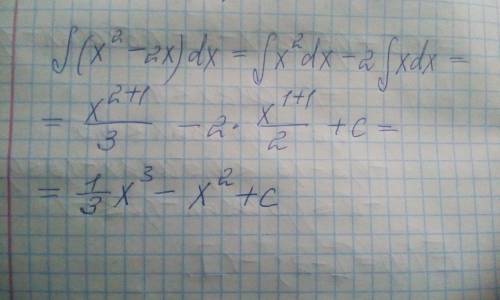 ∫(x²-2x)dx = ∫x²dx - 2∫xdx =
= x²⁺¹/3 - 2 · x¹⁺¹/2 + c =
= 1/3 x³ - x² + c